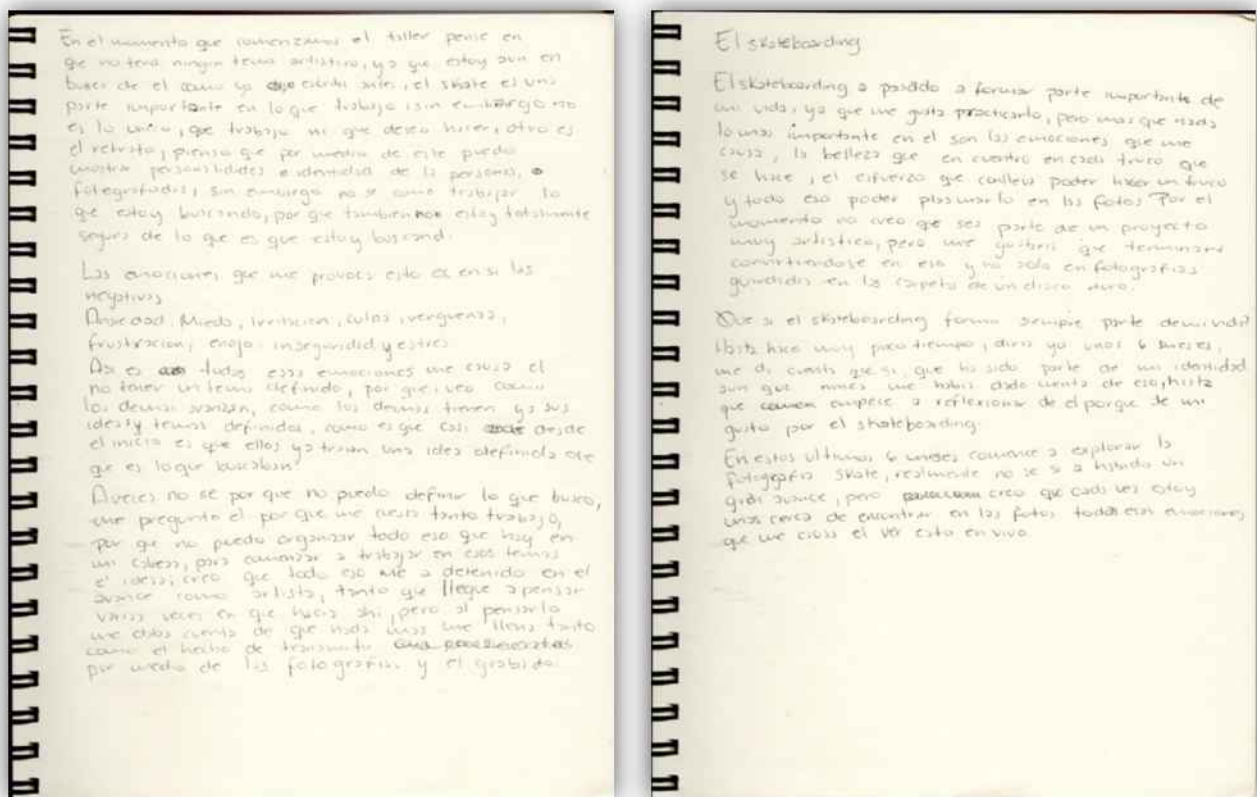 En el momento que comenzamos el taller pense en
que no tenia ningun tema artistico, ya que estoy aun en
busca de el como ya escribi antes, el skate es una
parte importante en lo que trabajo, sin embargo no
es lo unico, que trabajo ni que deseo hacer, otro es
el retrato, pienso que por medio de este puedo
mostrar personalidades e identidad de la personas,
fotografiadas, sin embargo no se como trabajar lo
que estoy buscando, por que tambien no estoy totalmente
segura de lo que es que estoy buscand.
Las emociones que me provoca esto es en si las
negativas
Ansiedad, Miedo, irritacion, culpa, verguenza,
frustracion, enojo, inseguridad y estres
Asi es todas esas emociones me causa el
no tener un tema definido, por que veo como
los demas avanzan, como los demas tienen ya sus
ideas y temas definidos, como es que casi desde
el inicio es que ellos ya traian una idea definida de
que es lo que buscaban?
Aveces no se por que no puedo definir lo que busco,
me pregunto el por que me cuesta tanto trabajo,
por que no puedo organizar todo eso que hay en
mi cabeza, para comenzar a trabajar en esos temas
e ideas; creo que todo eso me a detenido en el
avance como artista, tanto que llegue a pensar
varias veces en que hacia ahi, pero al pensarlo
me daba cuenta de que nada mas me llena tanto
como el hecho de transmitir
por medio de las fotografias y el grabado.
El skateboarding
El skateboarding a pasado a formar parte importante de
mi vida, ya que me gusta practicarlo, pero mas que nada
lo mas importante en el son las emociones que me
causa, la belleza que en cuentro en cada truco que
se hace, el esfuerzo que conlleva poder hacer un truco
y todo eso poder plasmarlo en las fotos Por el
momento no creo que sea parte de un proyecto
muy artistico, pero me gustaria que terminara
convirtiendose en eso y no solo en fotografias
guardadas en la carpeta de un disco duro.
Que si el skateboarding forma siempre parte de mi vida?
Hasta hace muy poco tiempo, diria ya unos 6 meses,
me di cuenta que si, que ha sido parte de mi identidad
aun que nunca me habia dado cuenta de eso, hasta
que empece a reflexionar de el porque de mi
gusto por el skateboarding.
En estos ultimos 6 meses comence a explorar la
fotografia skate, realmente no se si a habido un
gran avance, pero creo que cada ves estoy
mas cerca de encontrar en las fotos todas esas emociones
que me causa el ver esto en vivo.